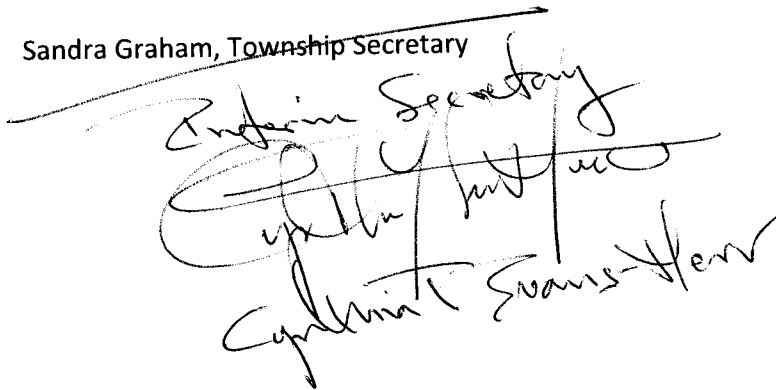 Sandra Graham, Township Secretary
Interim Secretary
Cynthia T Evans-Herr